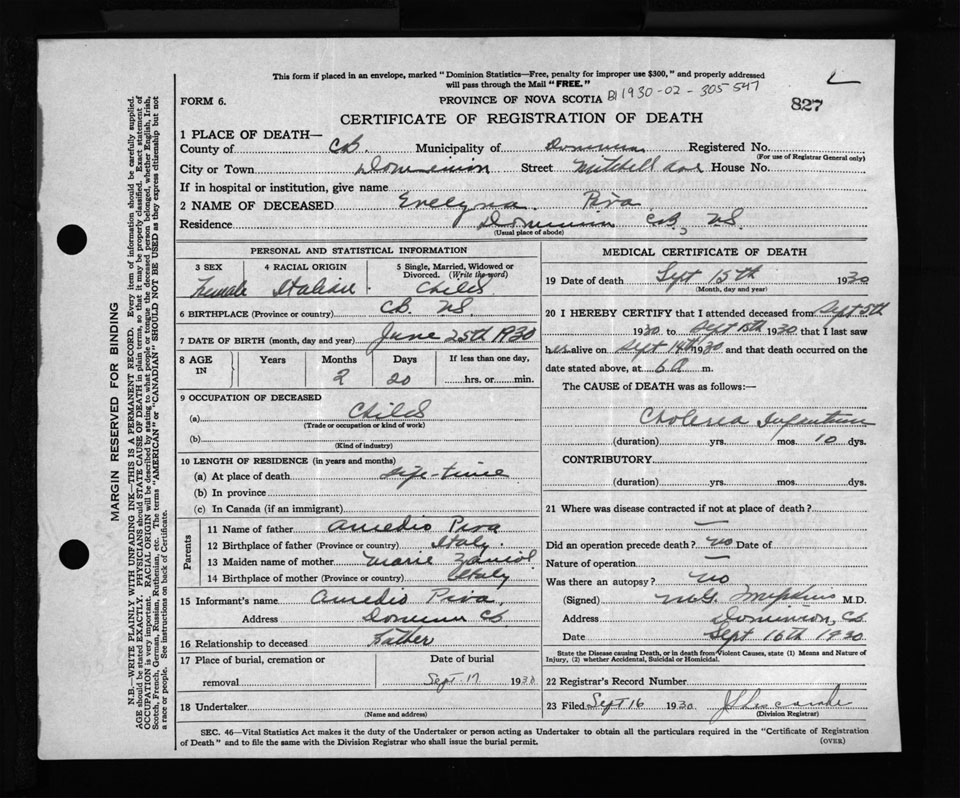 This form if placed in an envelope, marked "Dominion Statistics—Free, penalty for improper use $300," and properly addressed
will pass through the Mail "FREE."
FORM 6.
PROVINCE OF NOVA SCOTIA
1930-02-305547
827
CERTIFICATE OF REGISTRATION OF DEATH
1 PLACE OF DEATH—
County of C.B. Municipality of Dominion Registered No.
(For use of Registrar General only)
City or Town Dominion Street Mitchell Ave House No.
If in hospital or institution, give name
2 NAME OF DECEASED Evelyna Piva
Residence Dominion C.B., N.S.
(Usual place of abode)
PERSONAL AND STATISTICAL INFORMATION
3 SEX 4 RACIAL ORIGIN 5 Single, Married, Widowed or Divorced. (Write the word)
Female Italian Child
6 BIRTHPLACE (Province or country) C.B. N.S.
7 DATE OF BIRTH (month, day and year) June 25th 1930
8 AGE IN Years Months Days If less than one day,
2 20 hrs. or min.
9 OCCUPATION OF DECEASED
(a) Child
(Trade or occupation or kind of work)
(b)
(Kind of industry)
10 LENGTH OF RESIDENCE (in years and months)
(a) At place of death life-time
(b) In province
(c) In Canada (if an immigrant)
Parents
11 Name of father Amedio Piva
12 Birthplace of father (Province or country) Italy.
13 Maiden name of mother Marie
14 Birthplace of mother (Province or country) Italy
15 Informant's name Amedio Piva,
Address Dominion C.B.
16 Relationship to deceased Father
17 Place of burial, cremation or removal Date of burial
Sept 17 1930
18 Undertaker
(Name and address)
MEDICAL CERTIFICATE OF DEATH
19 Date of death Sept 15th 1930
(Month, day and year)
20 I HEREBY CERTIFY that I attended deceased from Sept 5th
1930 to Sept 15th 1930 that I last saw
her alive on Sept 14th 1930 and that death occurred on the
date stated above, at 6 A m.
The CAUSE of DEATH was as follows:
Cholerea Infantum
(duration) yrs. mos. 10 dys.
CONTRIBUTORY
(duration) yrs. mos. dys.
21 Where was disease contracted if not at place of death?
—
Did an operation precede death? no Date of
Nature of operation —
Was there an autopsy? no
(Signed) M.G. M.D.
Address Dominion, C.B.
Date Sept 16th 1930
State the Disease causing Death, or in death from Violent Causes, state (1) Means and Nature of
Injury, (2) whether Accidental, Suicidal or Homicidal.
22 Registrar's Record Number
23 Filed Sept 16 1930
(Division Registrar)
SEC. 46—Vital Statistics Act makes it the duty of the Undertaker or person acting as Undertaker to obtain all the particulars required in the "Certificate of Registration
of Death" and to file the same with the Division Registrar who shall issue the burial permit.
(OVER)
MARGIN RESERVED FOR BINDING
N.B.—WRITE PLAINLY WITH UNFADING INK—THIS IS A PERMANENT RECORD. Every item of information should be carefully supplied.
AGE should be stated EXACTLY. PHYSICIANS should STATE CAUSE OF DEATH in plain terms, so that it may be properly classified. Exact statement of
OCCUPATION is very important. RACIAL ORIGIN will be described by stating to what people or tongue the deceased person belonged, whether English, Irish,
Scotch, French, German, Russian, Ruthenian, etc. The terms "AMERICAN" or "CANADIAN" SHOULD NOT BE USED as they express citizenship but not
a race or people. See instructions on back of Certificate.